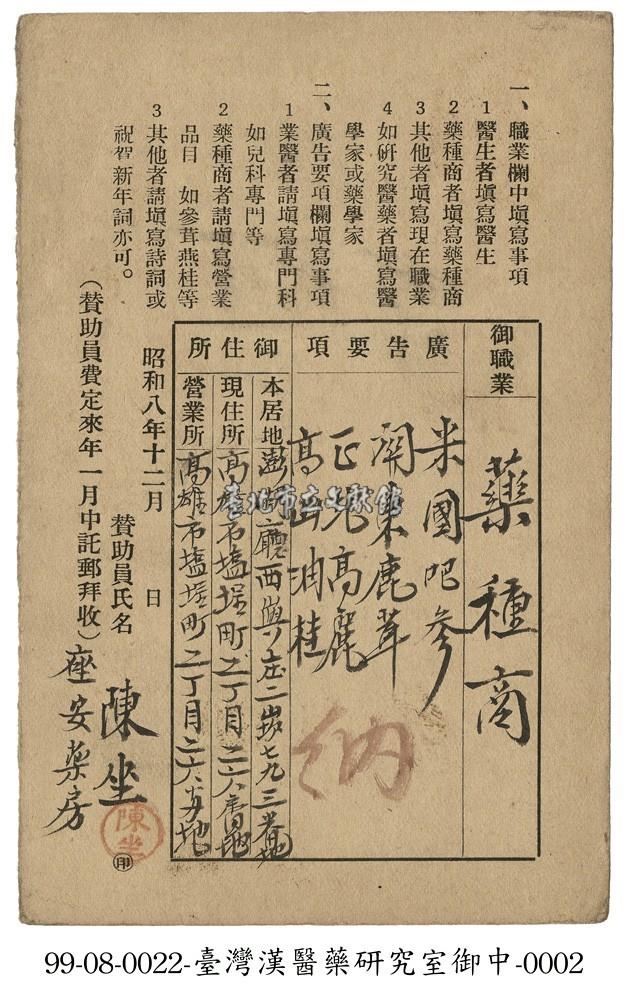 一、職業欄中塡寫事項
1 醫生者塡寫醫生
2 藥種商者塡寫藥種商
3 其他者塡寫現在職業
4 如硏究醫藥者塡寫醫
學家或藥學家
二、廣告要項欄塡寫事項
1 業醫者請塡寫專門科
如兒科專門等
2 藥種商者請塡寫營業
品目 如參茸燕桂等
3 其他者請塡寫詩詞或
祝賀新年詞亦可。
御職業
藥種商
廣告要項
米國吧參
関東鹿茸
正光高麗
高山油桂
納
御住所
本居地 澎湖廳西嶼庄二崁七九三番地
現住所 高雄市塩埕町二丁目二六番地
營業所 高雄市塩埕町二丁目二六番地
昭和八年十二月 日
贊助員氏名 陳坐
陳坐
印
(贊助員費定來年一月中託郵拜收)
座安藥房
臺北市立文獻館
99-08-0022-臺灣漢醫藥研究室御中-0002